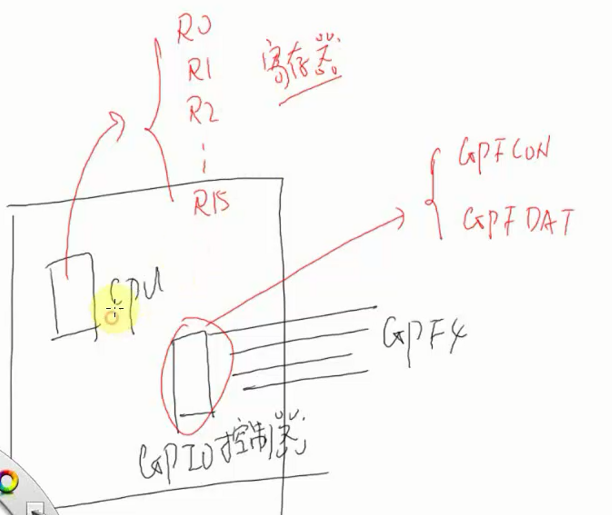 R0
R1
寄存器
R2
R15
GPFCON
GPFDAT
CPU
GPF4
GPIO控制器